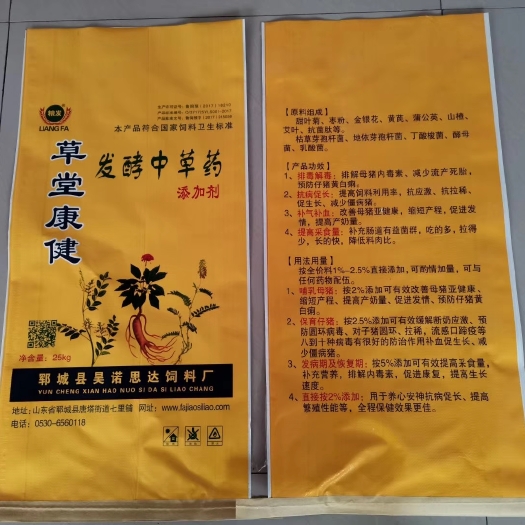 粮发
LIANG FA
本产品符合国家饲料卫生标准
草堂康健
发酵中草药
添加剂
净含量：25kg
郓城县昊诺思达饲料厂
YUN CHENG XIAN HAO NUO SI DA SI LIAO CHANG
地址：山东省郓城县唐塔街道七里铺 网址：www.fajiaosiliao.com
电话：0530-6560118
【原料组成】
甜叶菊、枣粉、金银花、黄芪、蒲公英、山楂、
艾叶、抗菌肽等。
枯草芽孢杆菌、地依芽孢杆菌、丁酸梭菌、酵母
菌、乳酸菌。
【产品功效】
1、排毒解毒：排解母猪内毒素、减少流产死胎，
预防仔猪黄白痢。
2、抗病促长：提高饲料利用率，抗应激、抗拉稀、
促生长、减少僵病猪。
3、补气补血：改善母猪亚健康，缩短产程，促进发
情，提高产奶量。
4、提高采食量：补充肠道有益菌群，吃的多，拉得
少，长的快，降低料肉比。
【用法用量】
按全价料1%-2.5%直接添加，可酌情加量，可与
任何药物配伍。
1、哺乳母猪：按2%添加可有效改善母猪亚健康、
缩短产程、提高产奶量、促进发情、预防仔猪黄
白痢。
2、保育仔猪：按2.5%添加可有效缓解断奶应激、预
防圆环病毒、对子猪圆环、拉稀，流感口蹄疫等
八到十种病毒有很好的防治作用补血促生长、减
少僵病猪。
3、发病期及恢复期：按5%添加可有效提高采食量，
补充营养，排解内毒素，促进康复，提高生长
速度。
4、直接按2%添加：用于养心安神抗病促长、提高
繁殖性能等，全程保健效果更佳。